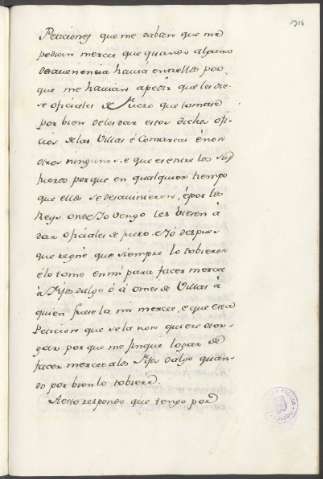 Peticiones que me daban que me
pedian merced que quando alguna
desavenencia havia entre ellos por
que me havian a pedir que les die
se oficiales de fuero que tomase
por bien de les dar estos dichos ofi
cios de las Villas é Comarcas é non
otros ningunos e que
fuero porque en qualquier tiempo
que ellos se desavinieren, é por los
Reyes onde Yo vengo les dieron á
dar oficiales de fuero é Yo despues
que regné que siempre lo tobieron
é lo tomé en mi para facer merced
á Fijosdalgo é á omes de Villas á
quien fue la mi merced, e que esta
Peticion que se la non quiera otor
gar por que me finque logar de
facer merced a los Fijosdalgo quan
do por bien lo tobiere
A esto respondo que tengo por